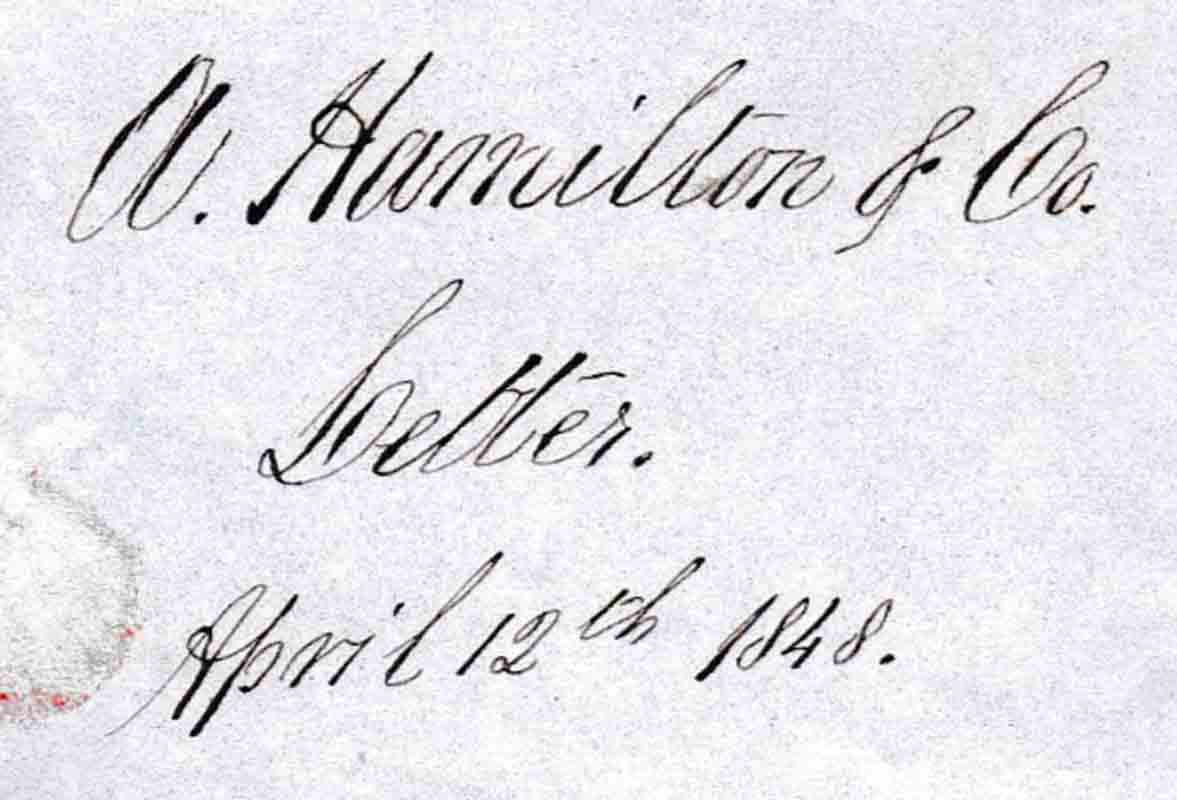 A. Hamilton & Co.
Letter.
April 12th 1848.